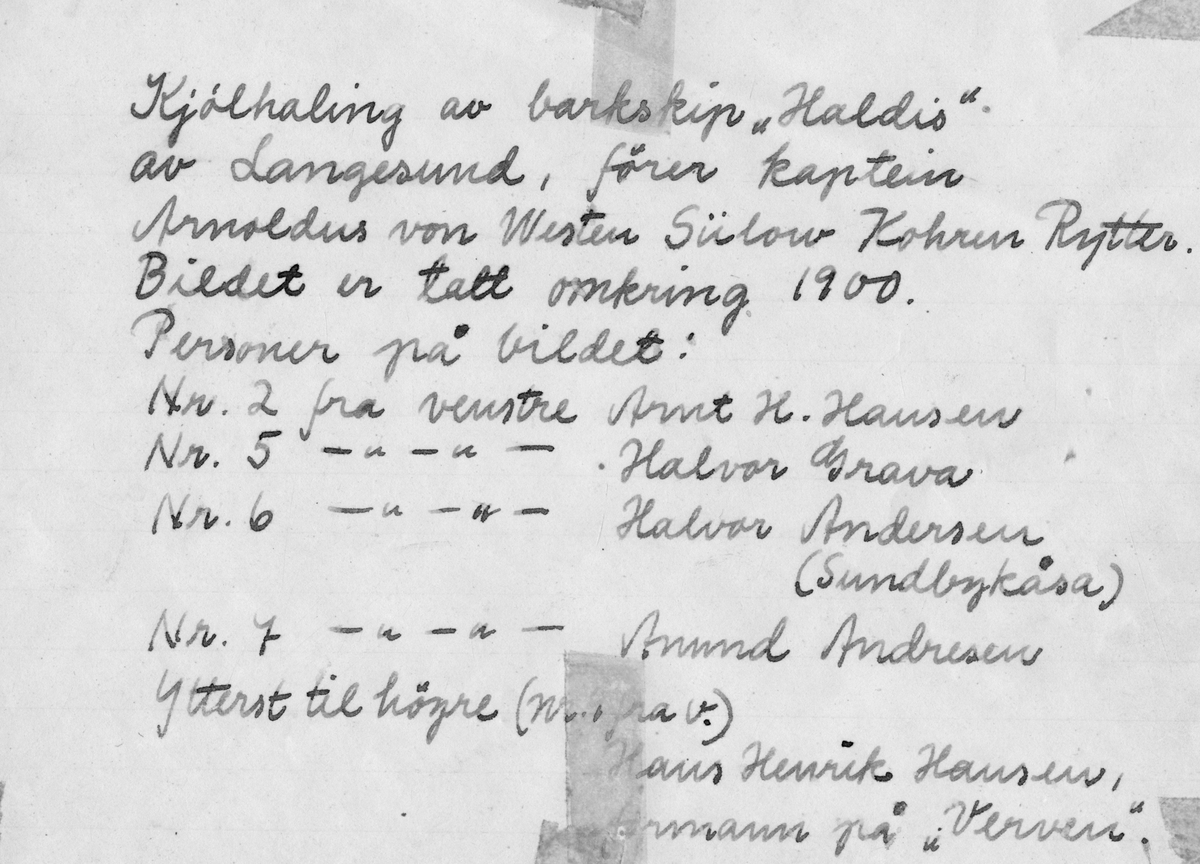 Kjölhaling av barkskip „Haldis“.
av Langesund, förer kaptein
Arnoldus von Westen Sülow Kohren Rytter.
Bildet er tatt omkring 1900.
Personer på bildet:
Nr. 2 fra venstre Arnt H. Hansen
Nr. 5 —„—„— Halvor Grava
Nr. 6 —„—„— Halvor Andersen
(Sundbykåsa)
Nr. 7 —„—„— Anund Andresen
Ytterst til högre (nr. fra v.)
Hans Henrik Hansen,
på „Verven“.